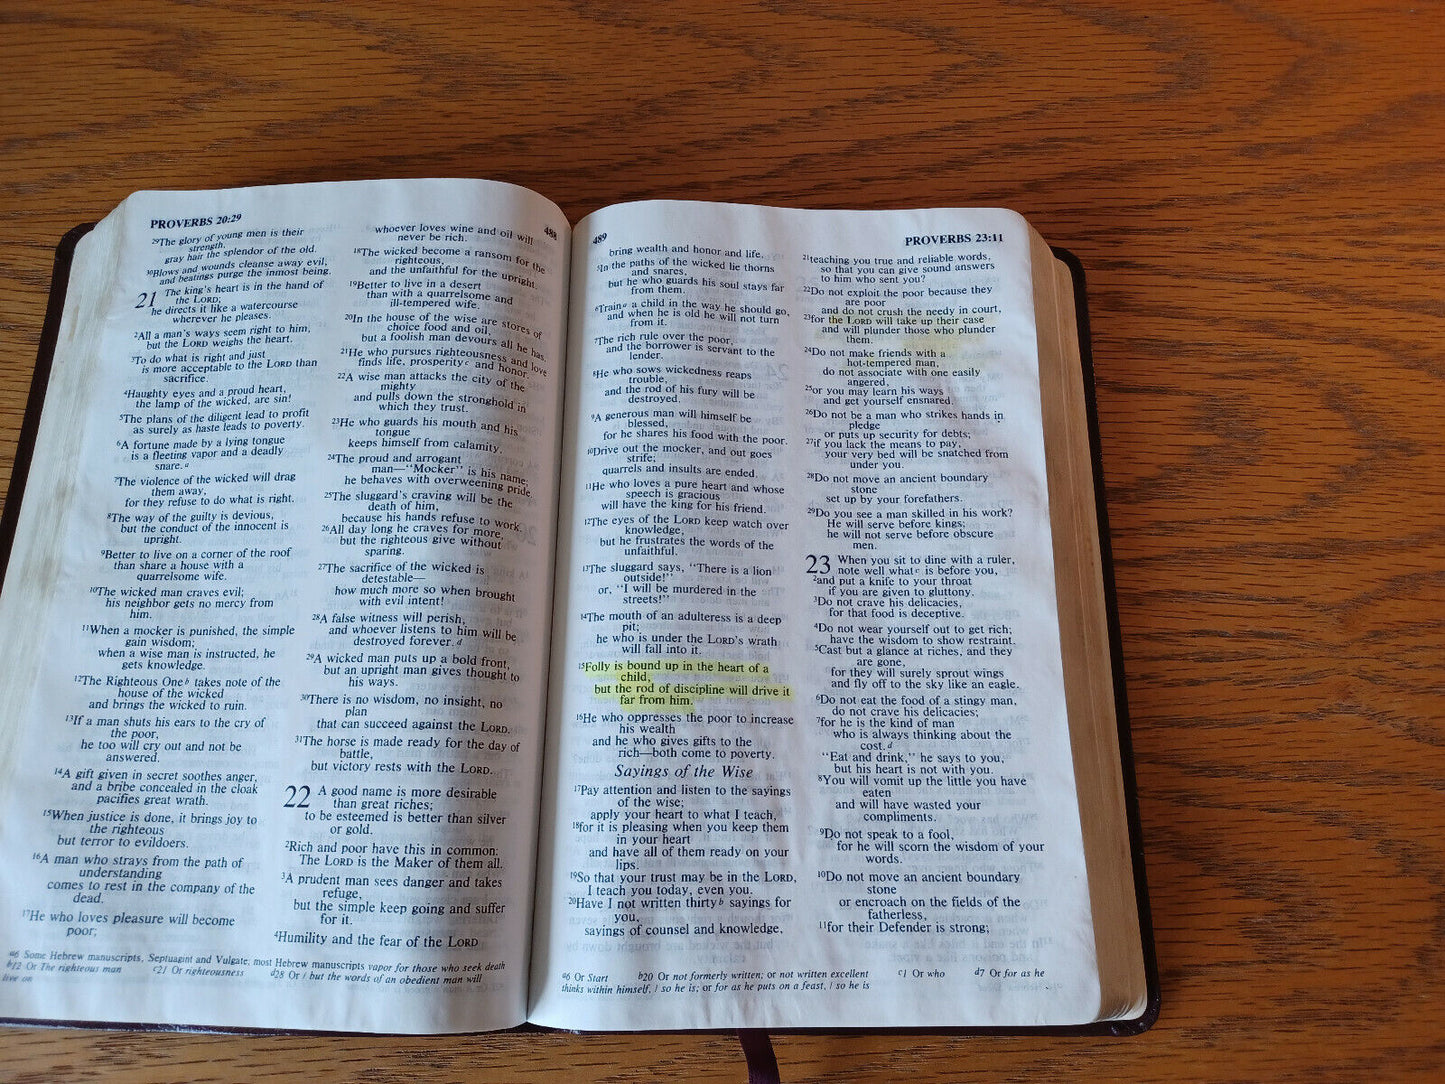 PROVERBS 20:29
488
29The glory of young men is their
strength,
gray hair the splendor of the old.
30Blows and wounds cleanse away evil,
and beatings purge the inmost being.
21 The king's heart is in the hand of
the LORD;
he directs it like a watercourse
wherever he pleases.
2All a man's ways seem right to him,
but the LORD weighs the heart.
3To do what is right and just
is more acceptable to the LORD than
sacrifice.
4Haughty eyes and a proud heart,
the lamp of the wicked, are sin!
5The plans of the diligent lead to profit
as surely as haste leads to poverty.
6A fortune made by a lying tongue
is a fleeting vapor and a deadly
snare.a
7The violence of the wicked will drag
them away,
for they refuse to do what is right.
8The way of the guilty is devious,
but the conduct of the innocent is
upright.
9Better to live on a corner of the roof
than share a house with a
quarrelsome wife.
10The wicked man craves evil;
his neighbor gets no mercy from
him.
11When a mocker is punished, the simple
gain wisdom;
when a wise man is instructed, he
gets knowledge.
12The Righteous Oneb takes note of the
house of the wicked
and brings the wicked to ruin.
13If a man shuts his ears to the cry of
the poor,
he too will cry out and not be
answered.
14A gift given in secret soothes anger,
and a bribe concealed in the cloak
pacifies great wrath.
15When justice is done, it brings joy to
the righteous
but terror to evildoers.
16A man who strays from the path of
understanding
comes to rest in the company of the
dead.
17He who loves pleasure will become
poor;
whoever loves wine and oil will
never be rich.
18The wicked become a ransom for the
righteous,
and the unfaithful for the upright.
19Better to live in a desert
than with a quarrelsome and
ill-tempered wife.
20In the house of the wise are stores of
choice food and oil,
but a foolish man devours all he has.
21He who pursues righteousness and love
finds life, prosperityc and honor.
22A wise man attacks the city of the
mighty
and pulls down the stronghold in
which they trust.
23He who guards his mouth and his
tongue
keeps himself from calamity.
24The proud and arrogant
man—"Mocker" is his name;
he behaves with overweening pride.
25The sluggard's craving will be the
death of him,
because his hands refuse to work.
26All day long he craves for more,
but the righteous give without
sparing.
27The sacrifice of the wicked is
detestable—
how much more so when brought
with evil intent!
28A false witness will perish,
and whoever listens to him will be
destroyed forever.d
29A wicked man puts up a bold front,
but an upright man gives thought to
his ways.
30There is no wisdom, no insight, no
plan
that can succeed against the LORD.
31The horse is made ready for the day of
battle,
but victory rests with the LORD.
22 A good name is more desirable
than great riches;
to be esteemed is better than silver
or gold.
2Rich and poor have this in common:
The LORD is the Maker of them all.
3A prudent man sees danger and takes
refuge,
but the simple keep going and suffer
for it.
4Humility and the fear of the LORD
a6 Some Hebrew manuscripts, Septuagint and Vulgate; most Hebrew manuscripts vapor for those who seek death
b12 Or The righteous man c21 Or righteousness d28 Or / but the words of an obedient man will
live on
489
PROVERBS 23:11
bring wealth and honor and life.
5In the paths of the wicked lie thorns
and snares,
but he who guards his soul stays far
from them.
6Traina a child in the way he should go,
and when he is old he will not turn
from it.
7The rich rule over the poor,
and the borrower is servant to the
lender.
8He who sows wickedness reaps
trouble,
and the rod of his fury will be
destroyed.
9A generous man will himself be
blessed,
for he shares his food with the poor.
10Drive out the mocker, and out goes
strife;
quarrels and insults are ended.
11He who loves a pure heart and whose
speech is gracious
will have the king for his friend.
12The eyes of the LORD keep watch over
knowledge,
but he frustrates the words of the
unfaithful.
13The sluggard says, "There is a lion
outside!"
or, "I will be murdered in the
streets!"
14The mouth of an adulteress is a deep
pit;
he who is under the LORD's wrath
will fall into it.
15Folly is bound up in the heart of a
child,
but the rod of discipline will drive it
far from him.
16He who oppresses the poor to increase
his wealth
and he who gives gifts to the
rich—both come to poverty.
Sayings of the Wise
17Pay attention and listen to the sayings
of the wise;
apply your heart to what I teach,
18for it is pleasing when you keep them
in your heart
and have all of them ready on your
lips.
19So that your trust may be in the LORD,
I teach you today, even you.
20Have I not written thirtyb sayings for
you,
sayings of counsel and knowledge,
21teaching you true and reliable words,
so that you can give sound answers
to him who sent you?
22Do not exploit the poor because they
are poor
and do not crush the needy in court,
23for the LORD will take up their case
and will plunder those who plunder
them.
24Do not make friends with a
hot-tempered man,
do not associate with one easily
angered,
25or you may learn his ways
and get yourself ensnared.
26Do not be a man who strikes hands in
pledge
or puts up security for debts;
27if you lack the means to pay,
your very bed will be snatched from
under you.
28Do not move an ancient boundary
stone
set up by your forefathers.
29Do you see a man skilled in his work?
He will serve before kings;
he will not serve before obscure
men.
23 When you sit to dine with a ruler,
note well whatc is before you,
2and put a knife to your throat
if you are given to gluttony.
3Do not crave his delicacies,
for that food is deceptive.
4Do not wear yourself out to get rich;
have the wisdom to show restraint.
5Cast but a glance at riches, and they
are gone,
for they will surely sprout wings
and fly off to the sky like an eagle.
6Do not eat the food of a stingy man,
do not crave his delicacies;
7for he is the kind of man
who is always thinking about the
cost.d
"Eat and drink," he says to you,
but his heart is not with you.
8You will vomit up the little you have
eaten
and will have wasted your
compliments.
9Do not speak to a fool,
for he will scorn the wisdom of your
words.
10Do not move an ancient boundary
stone
or encroach on the fields of the
fatherless,
11for their Defender is strong;
a6 Or Start b20 Or not formerly written; or not written excellent c1 Or who d7 Or for as he
thinks within himself, / so he is; or for as he puts on a feast, / so he is